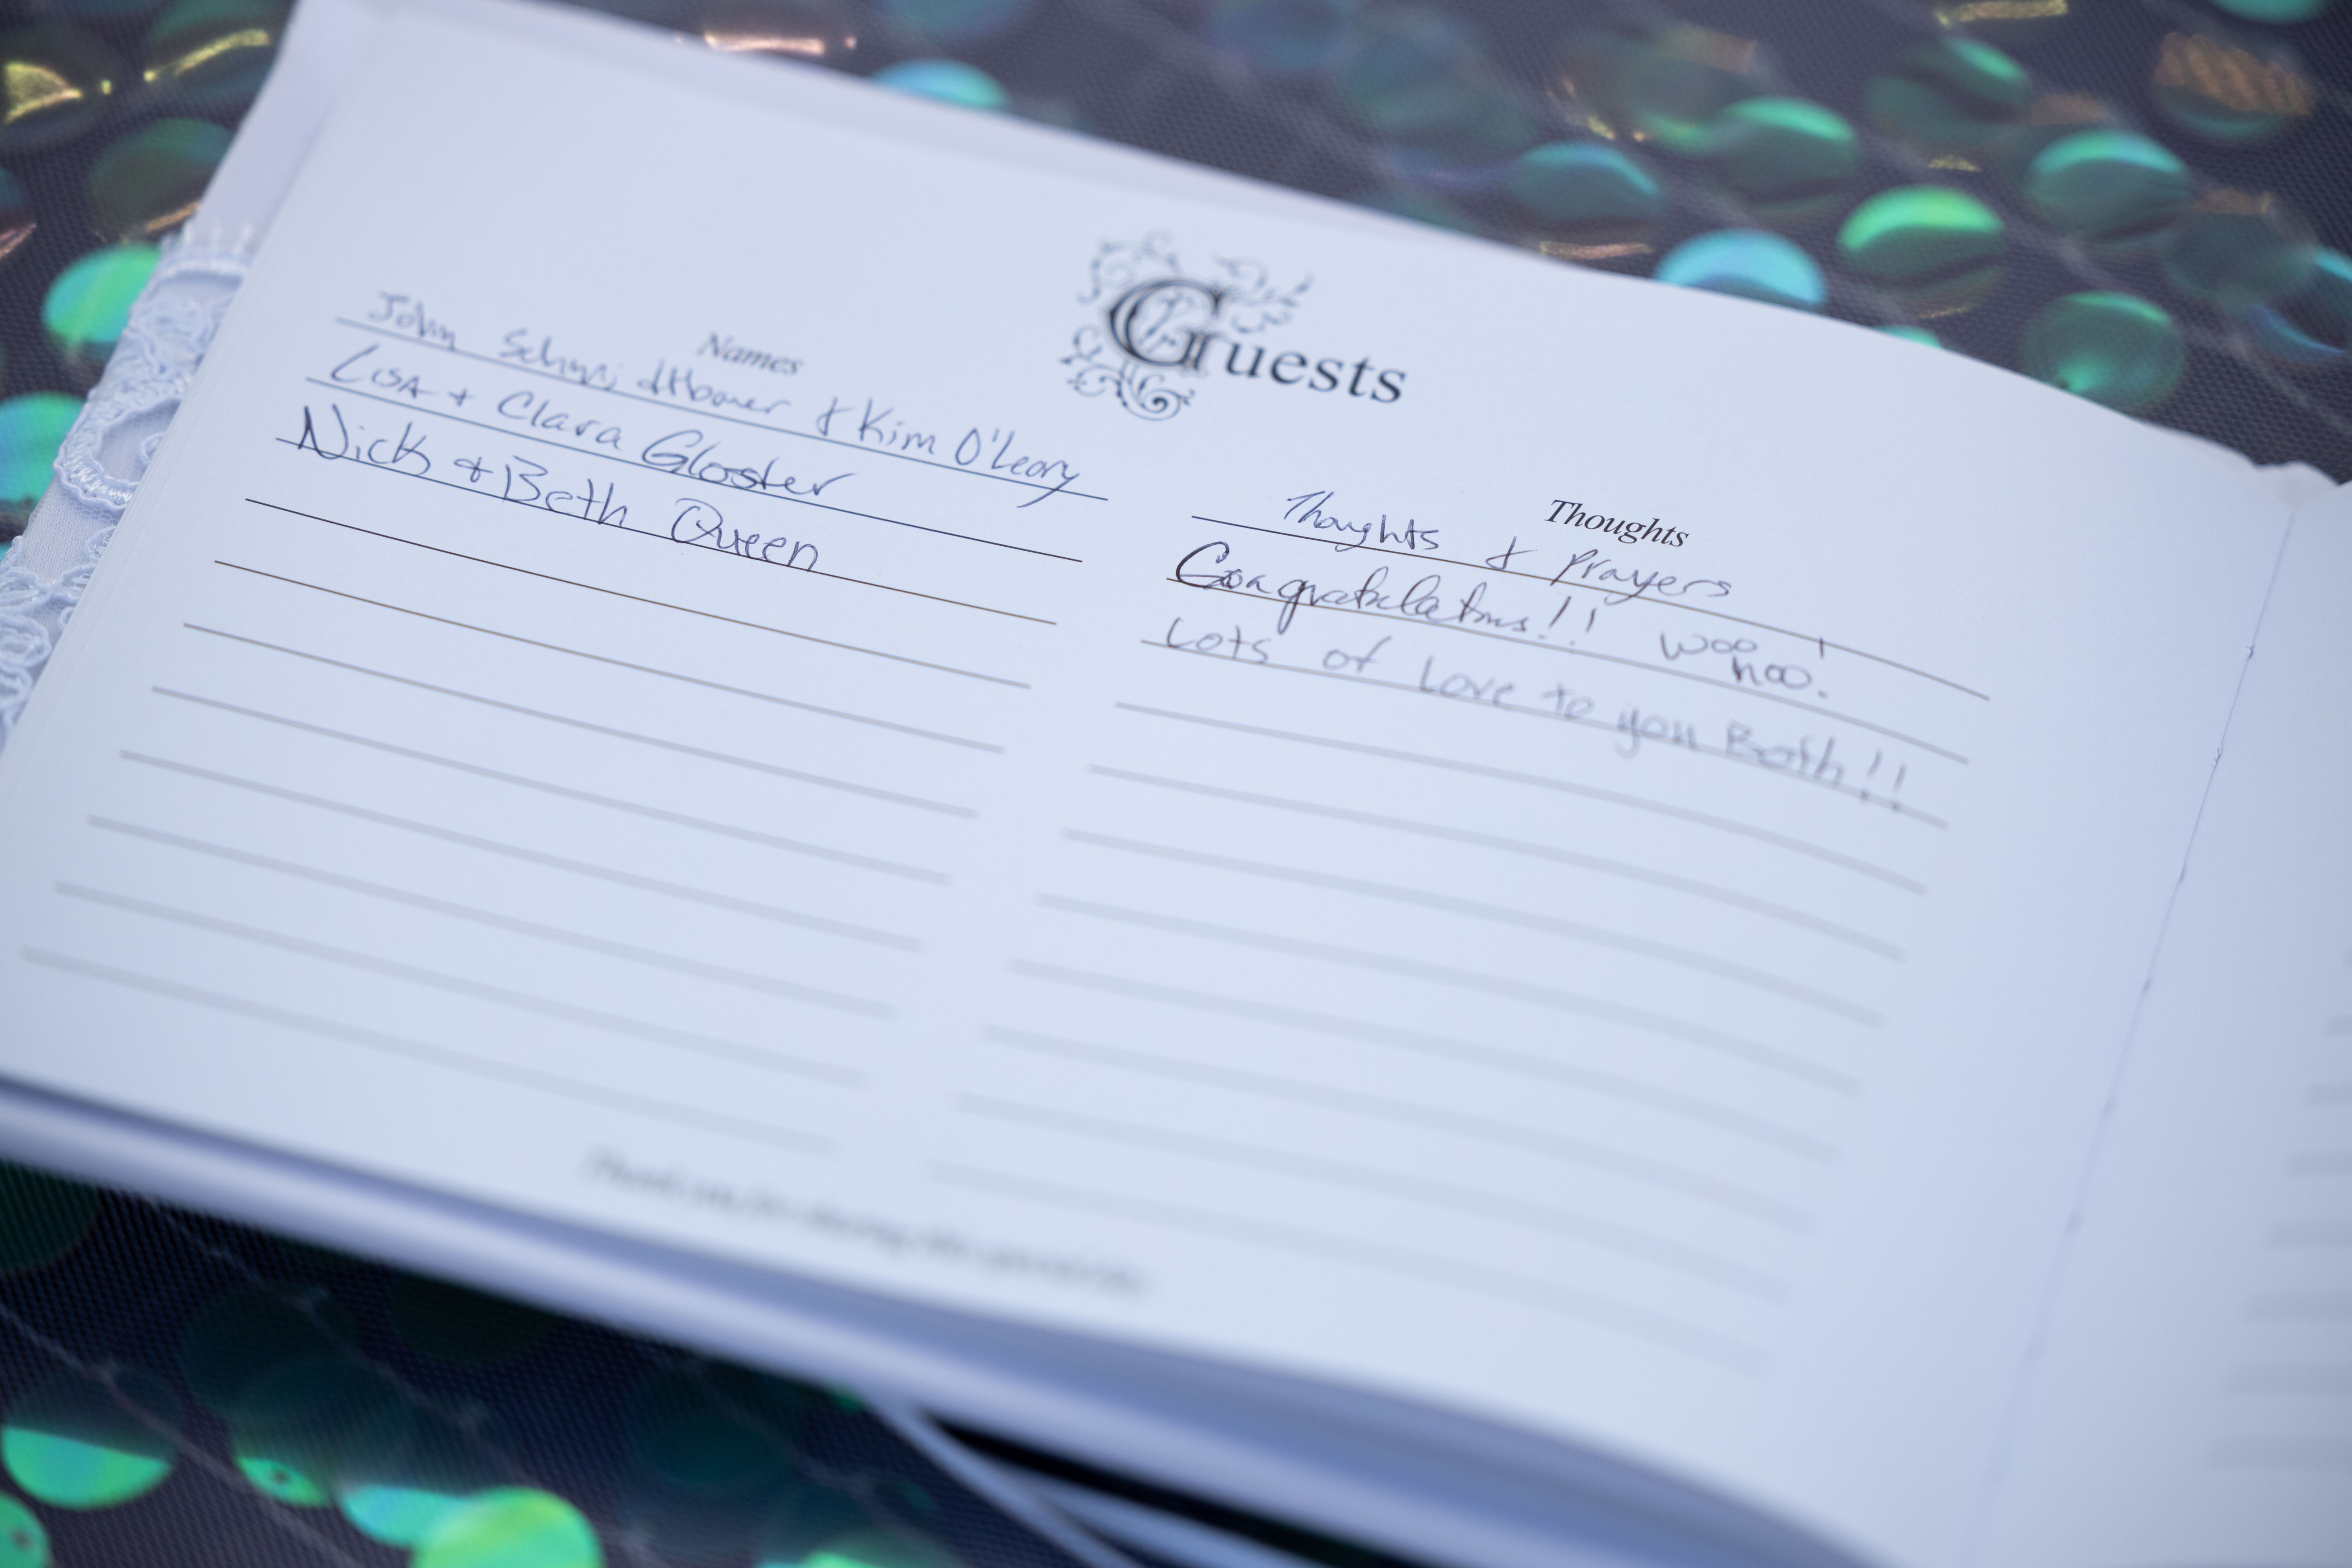 Guests
Names
John Schmidtbauer & Kim O'Leary
Lisa + Clara Gloster
Nick & Beth Queen
Thoughts
Thoughts & Prayers
Congratulations!! Woo hoo!
Lots of Love to you Both!!
Thank you for sharing this special day